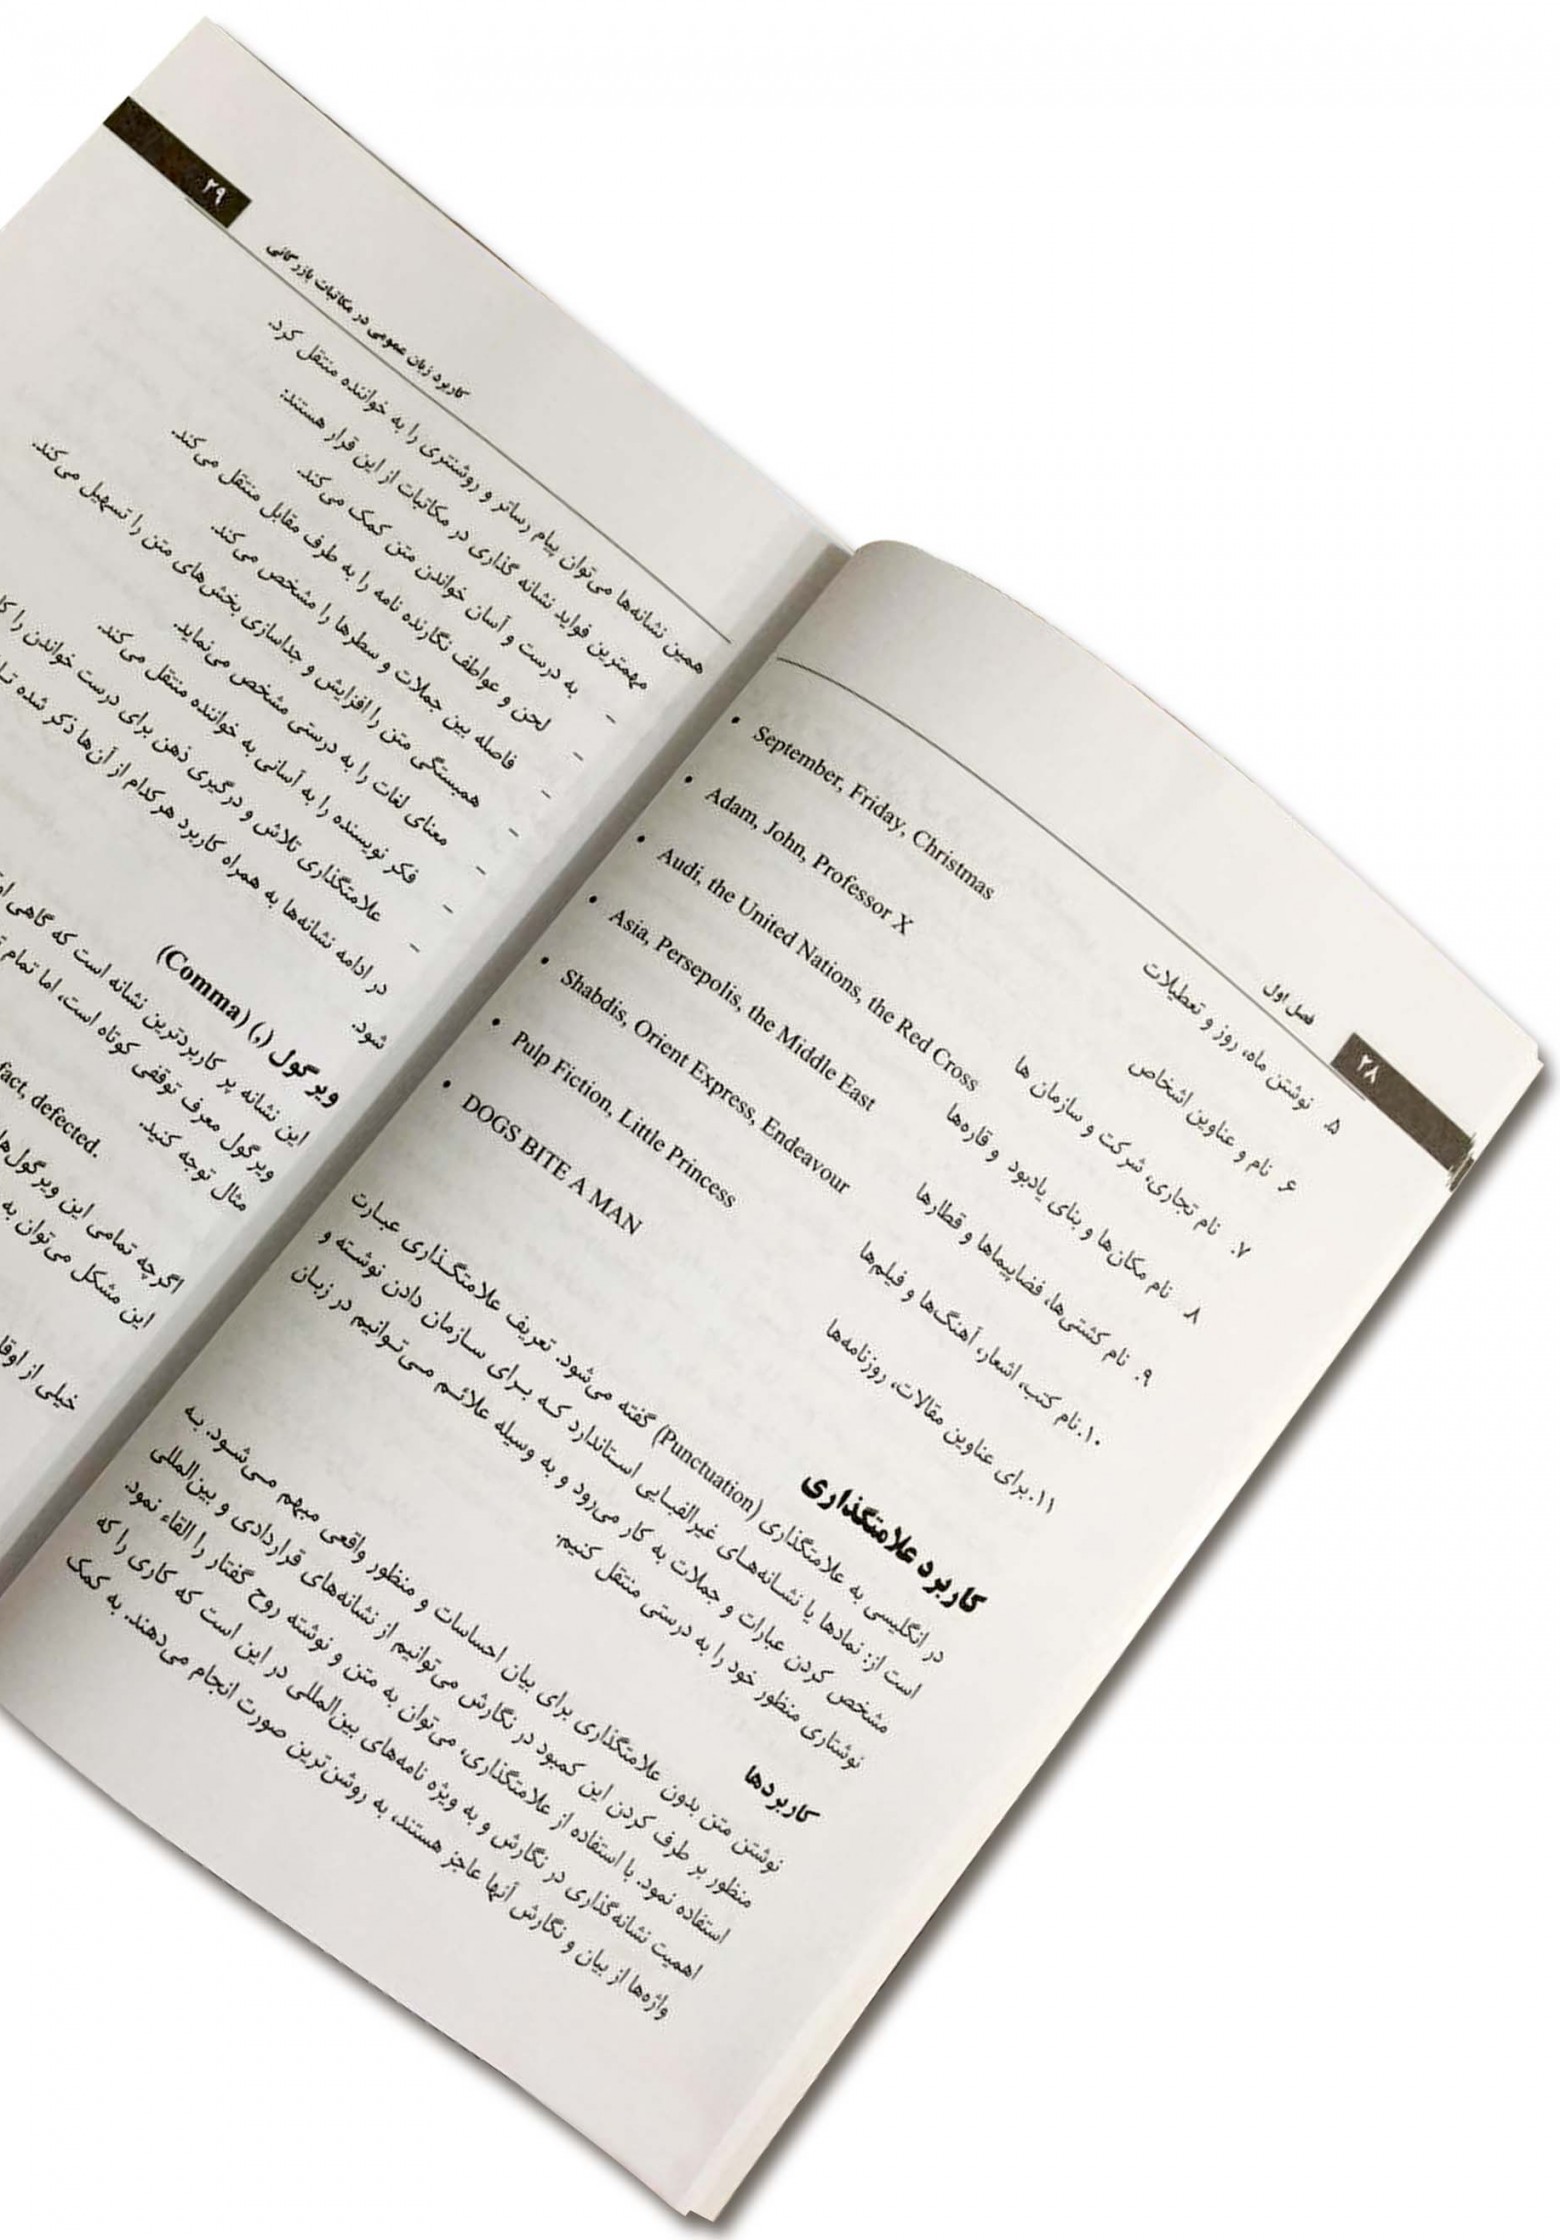 ۲۸
فصل اول
۵. نوشتن ماه، روز و تعطیلات
• September, Friday, Christmas
۶. نام و عناوین اشخاص
• Adam, John, Professor X
۷. نام تجاری، شرکت و سازمان ها
• Audi, the United Nations, the Red Cross
۸. نام مکان‌ها و بنای یادبود و قاره‌ها
• Asia, Persepolis, the Middle East
۹. نام کشتی‌ها، فضاپیماها و قطارها
• Shabdis, Orient Express, Endeavour
۱۰. نام کتب، اشعار، آهنگ‌ها و فیلم‌ها
• Pulp Fiction, Little Princess
۱۱. برای عناوین مقالات، روزنامه‌ها
• DOGS BITE A MAN
کاربرد علامتگذاری
در انگلیسی به علامتگذاری (Punctuation) گفته می‌شود. تعریف علامتگذاری عبارت
است از: نمادها یا نشانه‌های غیرالفبایی استاندارد که برای سازمان دادن نوشته و
مشخص کردن عبارات و جملات به کار می‌رود و به وسیله علائم می‌توانیم در زبان
نوشتاری منظور خود را به درستی منتقل کنیم.
کاربردها
نوشتن متن بدون علامتگذاری برای بیان احساسات و منظور واقعی مبهم می‌شود. به
منظور بر طرف کردن این کمبود در نگارش می‌توانیم از نشانه‌های قراردادی و بین‌المللی
استفاده نمود. با استفاده از علامتگذاری، می‌توان به متن و نوشته روح گفتار را القاء نمود.
اهمیت نشانه‌گذاری در نگارش و به ویژه نامه‌های بین‌المللی در این است که کاری را که
واژه‌ها از بیان و نگارش آنها عاجز هستند، به روشن‌ترین صورت انجام می‌دهند. به کمک
۲۹
کاربرد زبان عمومی در مکاتبات بازرگانی
همین نشانه‌ها می‌توان پیام رساتر و روشنتری را به خواننده منتقل کرد.
مهمترین فواید نشانه گذاری در مکاتبات از این قرار هستند:
- به درست و آسان خواندن متن کمک می‌کند.
- لحن و عواطف نگارنده نامه را به طرف مقابل منتقل می‌کند.
- فاصله بین جملات و سطرها را مشخص می‌کند.
- همبستگی متن را افزایش و جداسازی بخش‌های متن را تسهیل می‌کند.
- معنای لغات را به درستی مشخص می‌نماید.
- فکر نویسنده را به آسانی به خواننده منتقل می‌کند.
- علامتگذاری تلاش و درگیری ذهن برای درست خواندن را
در ادامه نشانه‌ها به همراه کاربرد هرکدام از آن‌ها ذکر شده
شود.
ویرگول (,) (Comma)
این نشانه پر کاربردترین نشانه است که گاهی
ویرگول معرف توقفی کوتاه است، اما تمام
مثال توجه کنید.
fact, defected.
اگرچه تمامی این ویرگول‌ها
این مشکل می‌توان به
خیلی از